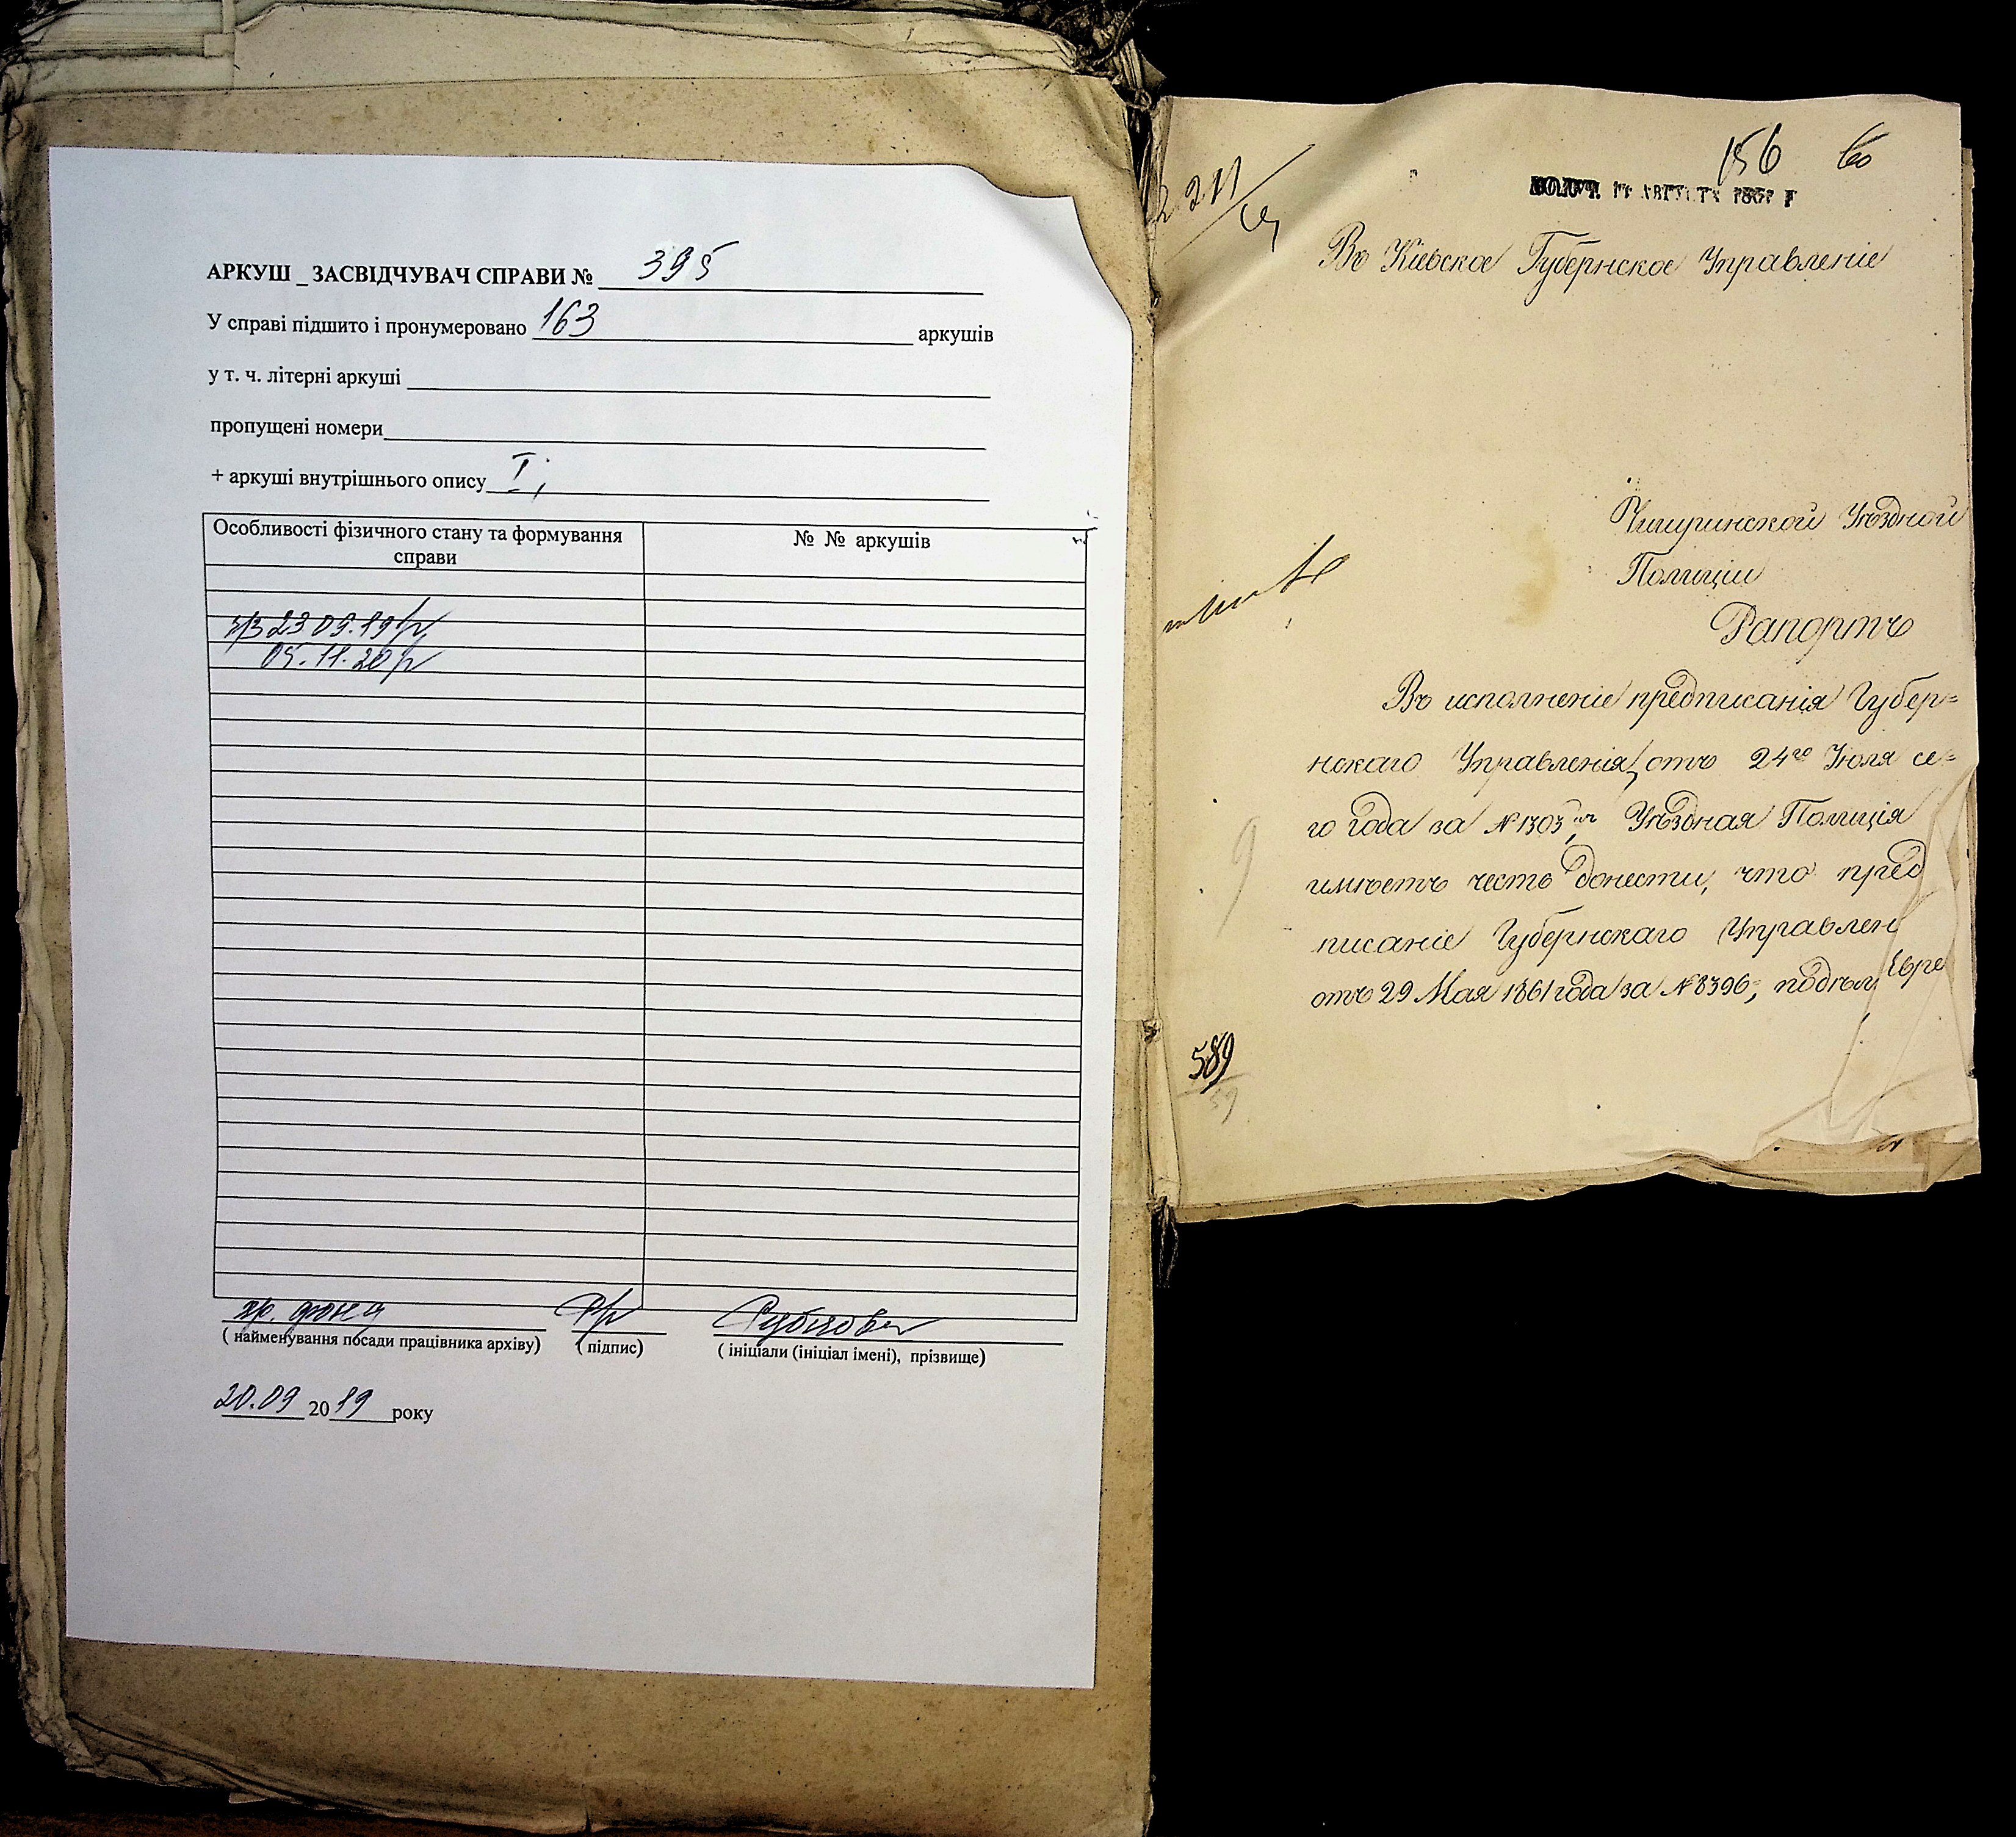 АРКУШ _ ЗАСВІДЧУВАЧ СПРАВИ № 395
У справі підшито і пронумеровано 163 аркушів
у т. ч. літерні аркуші
пропущені номери
+ аркуші внутрішнього опису I;
Особливості фізичного стану та формування справи
№ № аркушів
23 09.19
05.11.20
хр. фонд
( найменування посади працівника архіву)
( підпис)
( ініціали (ініціал імені), прізвище)
20.09 2019 року
156 60
ПОЛУЧ. АВГУСТА
Въ Кіевское Губернское Управленіе
Чигиринской Уѣздной
Полиціи
Рапортъ
Въ исполненіе предписанія Губер=
нскаго Управленія, отъ 24го Іюля се=
го года за № 1303, Уѣздная Полиція
имѣетъ честь донести, что пред
писаніе Губернскаго Управлен
отъ 29 Мая 1861 года за № 8396,
Евре
589
59